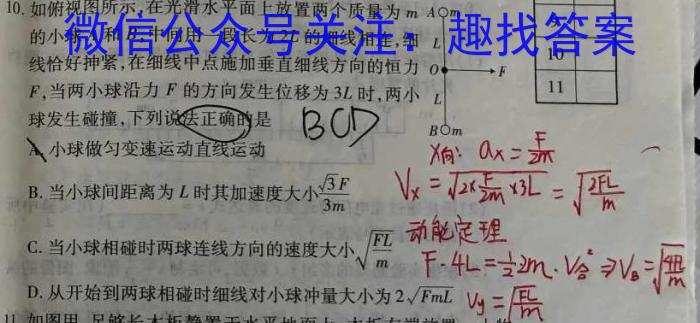 10. 如俯视图所示,在光滑水平面上放置两个质量为 m
的小球 A 和 B,中间用一段长为 2L 的细线相连,细
线恰好抻紧,在细线中点施加垂直细线方向的恒力
F,当两小球沿力 F 的方向发生位移为 3L 时,两小
球发生碰撞,下列说法正确的是
BCD
A. 小球做匀变速运动直线运动
B. 当小球间距离为 L 时其加速度大小 √3F/3m
C. 当小球相碰时两球连线方向的速度大小 √(FL/m)
D. 从开始到两球相碰时细线对小球冲量大小为 2√(FmL)
微信公众号关注:趣找答案
A m
L
O F
L
B m
10
11
X向: ax = F/2m
Vx = √(2×F/2m×3L) = √(2FL/m)
动能定理
F·4L = 1/2 2m·V合² ⇒ VB = √(4FL/m)
Vy = √(FL/m)